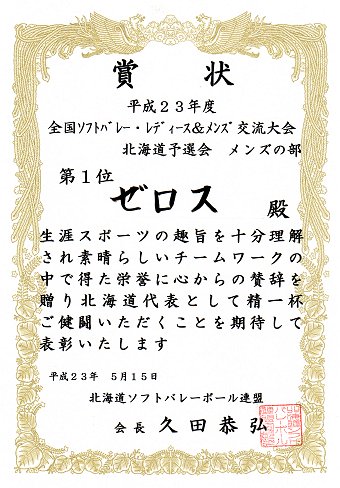 賞状
平成２３年度
全国ｿﾌﾄﾊﾞﾚｰ・ﾚﾃﾞｨｰｽ&ﾒﾝｽﾞ交流大会
北海道予選会　メンズの部
第１位
ゼロス　殿
生涯スポーツの趣旨を十分理解
され素晴らしいチームワークの
中で得た栄誉に心からの賛辞を
贈り北海道代表として精一杯
ご健闘いただくことを期待して
表彰いたします
平成２３年　５月１５日
北海道ソフトバレーボール連盟
会長　久田恭弘